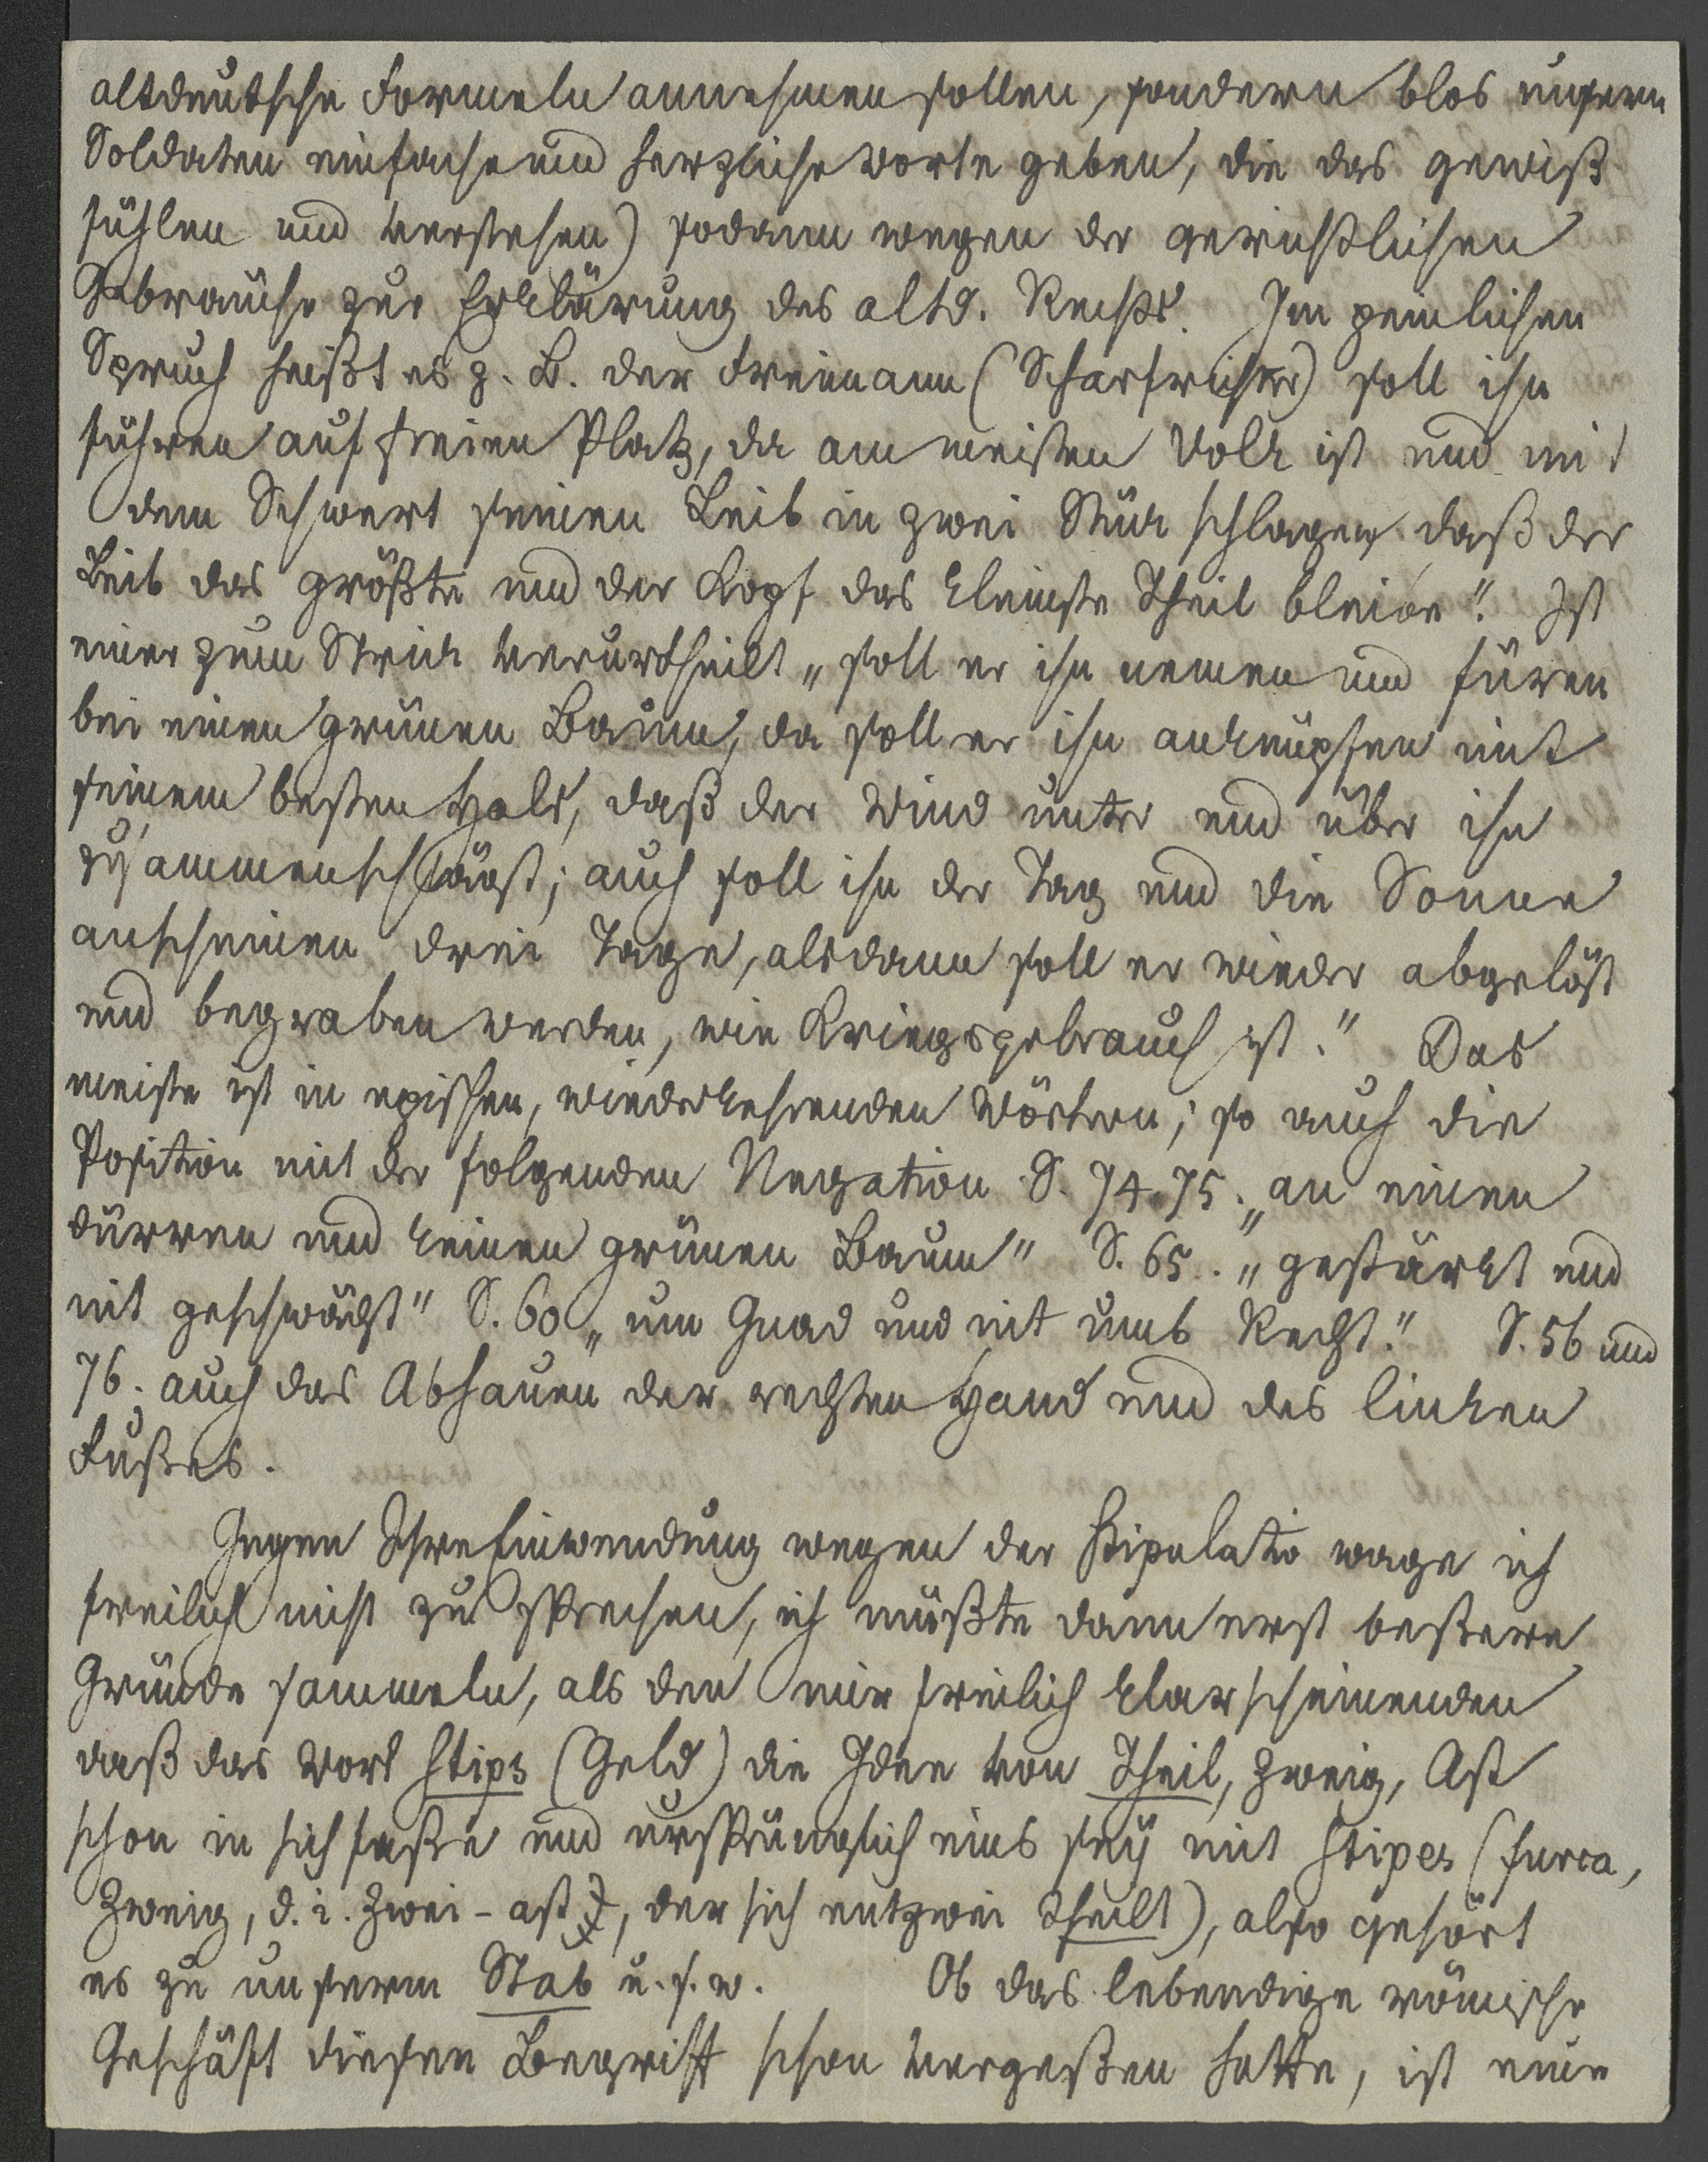 altdeutsche Formeln annehmen sollen, sondern blos unsern
Soldaten einfache und herzliche Worte geben, die das gewiß
fühlen und verstehen) sodann wegen der gerichtlichen
Gebräuche zur Erklärung des altd. Rechts. Im peinlichen
Spruch heißt es z. B. der Freimann (Scharfrichter) soll ihn
führen auf freien Platz, da am meisten Volk ist und mit
dem Schwert seinen Leib in zwei Stück schlagen, daß der
Leib das größte und der Kopf das kleinste Theil bleibe". Ist
einer zum Strick verurtheilt „soll er ihn nemen und füren
bei einen grünen Baum, da soll er ihn anknüpfen mit
seinem besten Hals, daß der Wind unter und über ihn
zusammenschlägt; auch soll ihn der Tag und die Sonne
anscheinen drei Tage, alsdann soll er wieder abgelöst
und begraben werden, wie Kriegsgebrauch ist." Das
meiste ist in epischen, wiederkehrenden Wörtern; so auch die
Position mit der folgenden Negation S. 74. 75. „an einen
dürren und keinen grünen Baum" S. 65. „gestärkt und
nit geschwächt" S. 60 „um Gnad und nit umb Recht." S. 56 und
76. auch das Abhauen der rechten Hand und des linken
Fußes.
Gegen Ihre Einwendung wegen der stipulatio wage ich
freilich nicht zu sprechen, ich müßte dann erst beßere
Gründe sammeln, als den mir freilich klar scheinenden
daß das Wort stips (Geld) die Idee von Theil, Zweig, Ast
schon in sich faße und ursprünglich eins sey mit stipes (furca,
Zweig, d. i. Zwei-ast, der sich entzwei theilt), also gehört
es zu unserm Stab u. s. w. Ob das lebendige römische
Geschäft diesen Begriff schon vergeßen hatte, ist eine